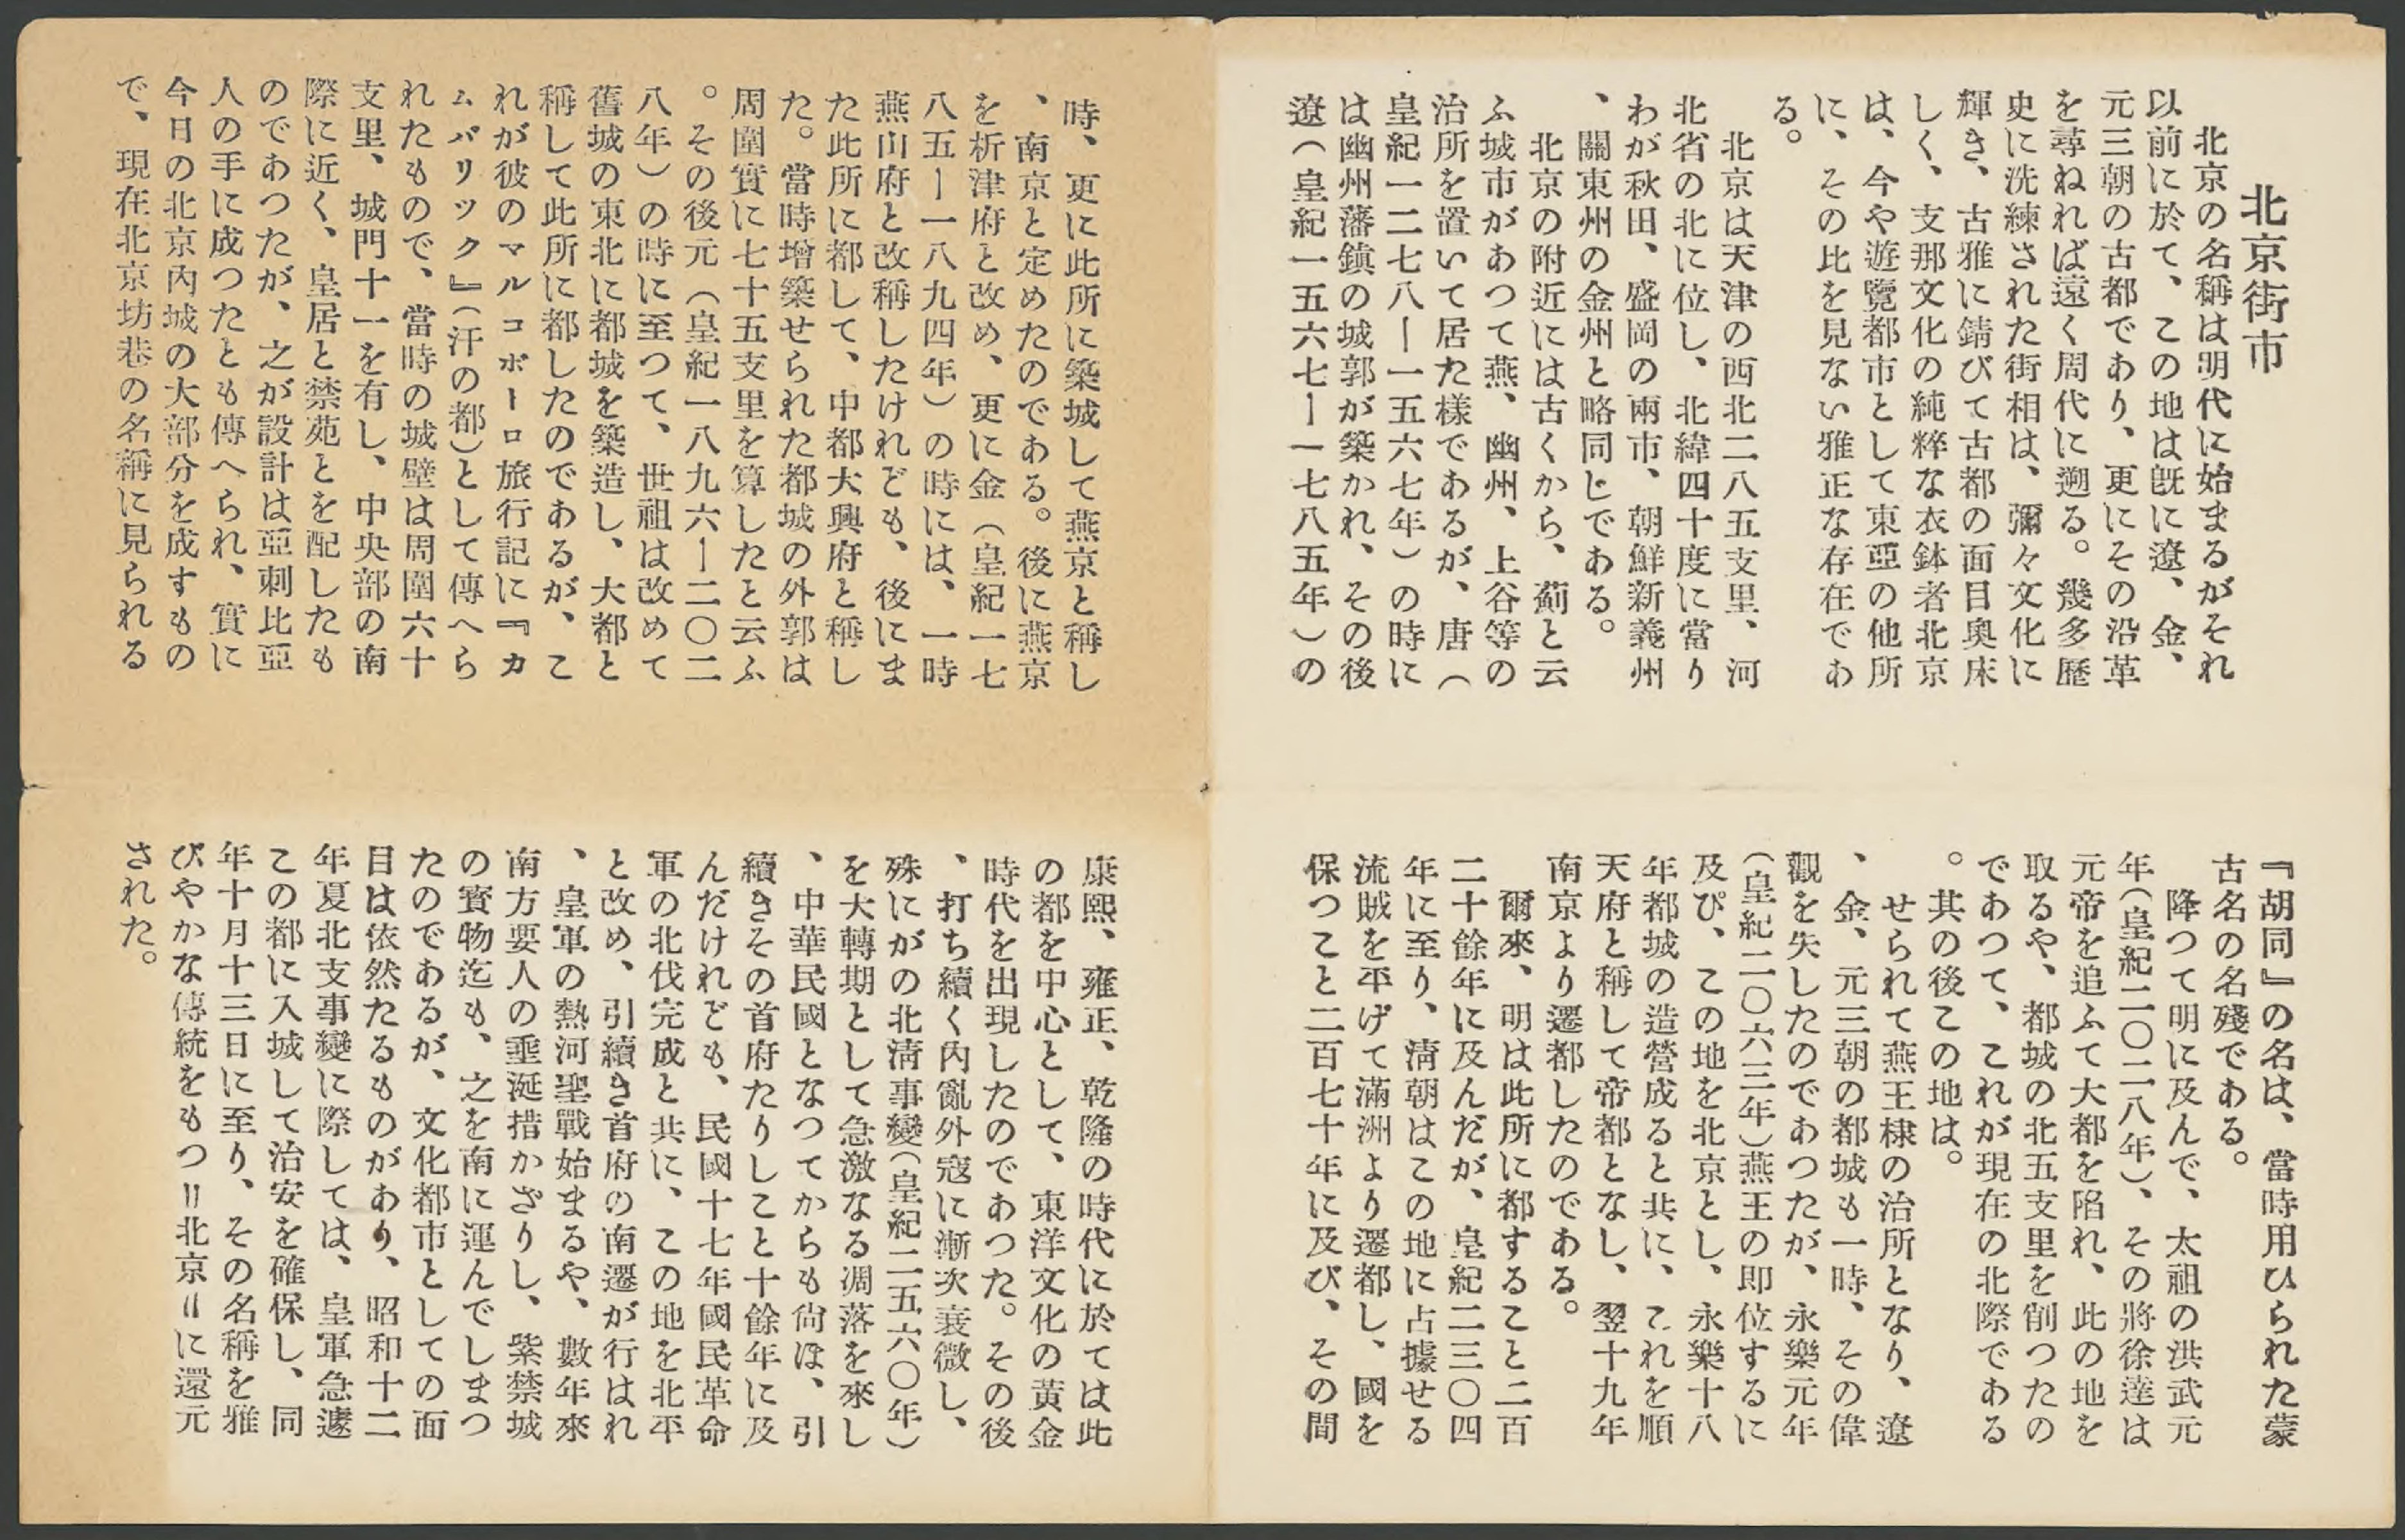 北京街市
北京の名稱は明代に始まるがそれ
以前に於て、この地は旣に遼、金、
元三朝の古都であり、更にその沿革
を尋ねれば遠く周代に遡る。幾多歷
史に洗練された街相は、彌々文化に
輝き、古雅に錆びて古都の面目奧床
しく、支那文化の純粹な衣鉢者北京
は、今や遊覽都市として東亞の他所
に、その比を見ない雅正な存在であ
る。
北京は天津の西北二八五支里、河
北省の北に位し、北緯四十度に當り
わが秋田、盛岡の兩市、朝鮮新義州
、關東州の金州と略同じである。
北京の附近には古くから、薊と云
ふ城市があつて燕、幽州、上谷等の
治所を置いて居た樣であるが、唐（
皇紀一二七八ー一五六七年）の時に
は幽州藩鎭の城郭が築かれ、その後
遼（皇紀一五六七ー一七八五年）の
時、更に此所に築城して燕京と稱し
、南京と定めたのである。後に燕京
を析津府と改め、更に金（皇紀一七
八五ー一八九四年）の時には、一時
燕山府と改稱したけれども、後にま
た此所に都して、中都大興府と稱し
た。當時增築せられた都城の外郭は
周圍實に七十五支里を算したと云ふ
。その後元（皇紀一八九六ー二〇二
八年）の時に至つて、世祖は改めて
舊城の東北に都城を築造し、大都と
稱して此所に都したのであるが、こ
れが彼のマルコポーロ旅行記に『カ
ムバリック』（汗の都）として傳へら
れたもので、當時の城壁は周圍六十
支里、城門十一を有し、中央部の南
際に近く、皇居と禁苑とを配したも
のであつたが、之が設計は亞刺比亞
人の手に成つたとも傳へられ、實に
今日の北京內城の大部分を成すもの
で、現在北京坊巷の名稱に見られる
『胡同』の名は、當時用ひられた蒙
古名の名殘である。
降つて明に及んで、太祖の洪武元
年（皇紀二〇二八年）、その將徐達は
元帝を追ふて大都を陷れ、此の地を
取るや、都城の北五支里を削つたの
であつて、これが現在の北際である
。其の後この地は。
せられて燕王棣の治所となり、遼
、金、元三朝の都城も一時、その偉
觀を失したのであつたが、永樂元年
（皇紀二〇六三年）燕王の卽位するに
及び、この地を北京とし、永樂十八
年都城の造營成ると共に、これを順
天府と稱して帝都となし、翌十九年
南京より遷都したのである。
爾來、明は此所に都すること二百
二十餘年に及んだが、皇紀二三〇四
年に至り、淸朝はこの地に占據せる
流賊を平げて滿洲より遷都し、國を
保つこと二百七十年に及び、その間
康熙、雍正、乾隆の時代に於ては此
の都を中心として、東洋文化の黃金
時代を出現したのであつた。その後
、打ち續く內亂外寇に漸次衰微し、
殊にがの北淸事變（皇紀二五六〇年）
を大轉期として急激なる凋落を來し
、中華民國となつてからも尙ほ、引
續きその首府たりしこと十餘年に及
んだけれども、民國十七年國民革命
軍の北伐完成と共に、この地を北平
と改め、引續き首府の南遷が行はれ
、皇軍の熱河聖戰始まるや、數年來
南方要人の垂涎措かざりし、紫禁城
の寳物迄も、之を南に運んでしまつ
たのであるが、文化都市としての面
目は依然たるものがあり、昭和十二
年夏北支事變に際しては、皇軍急遽
この都に入城して治安を確保し、同
年十月十三日に至り、その名稱を雅
びやかな傳統をもつ〓北京〓に還元
された。